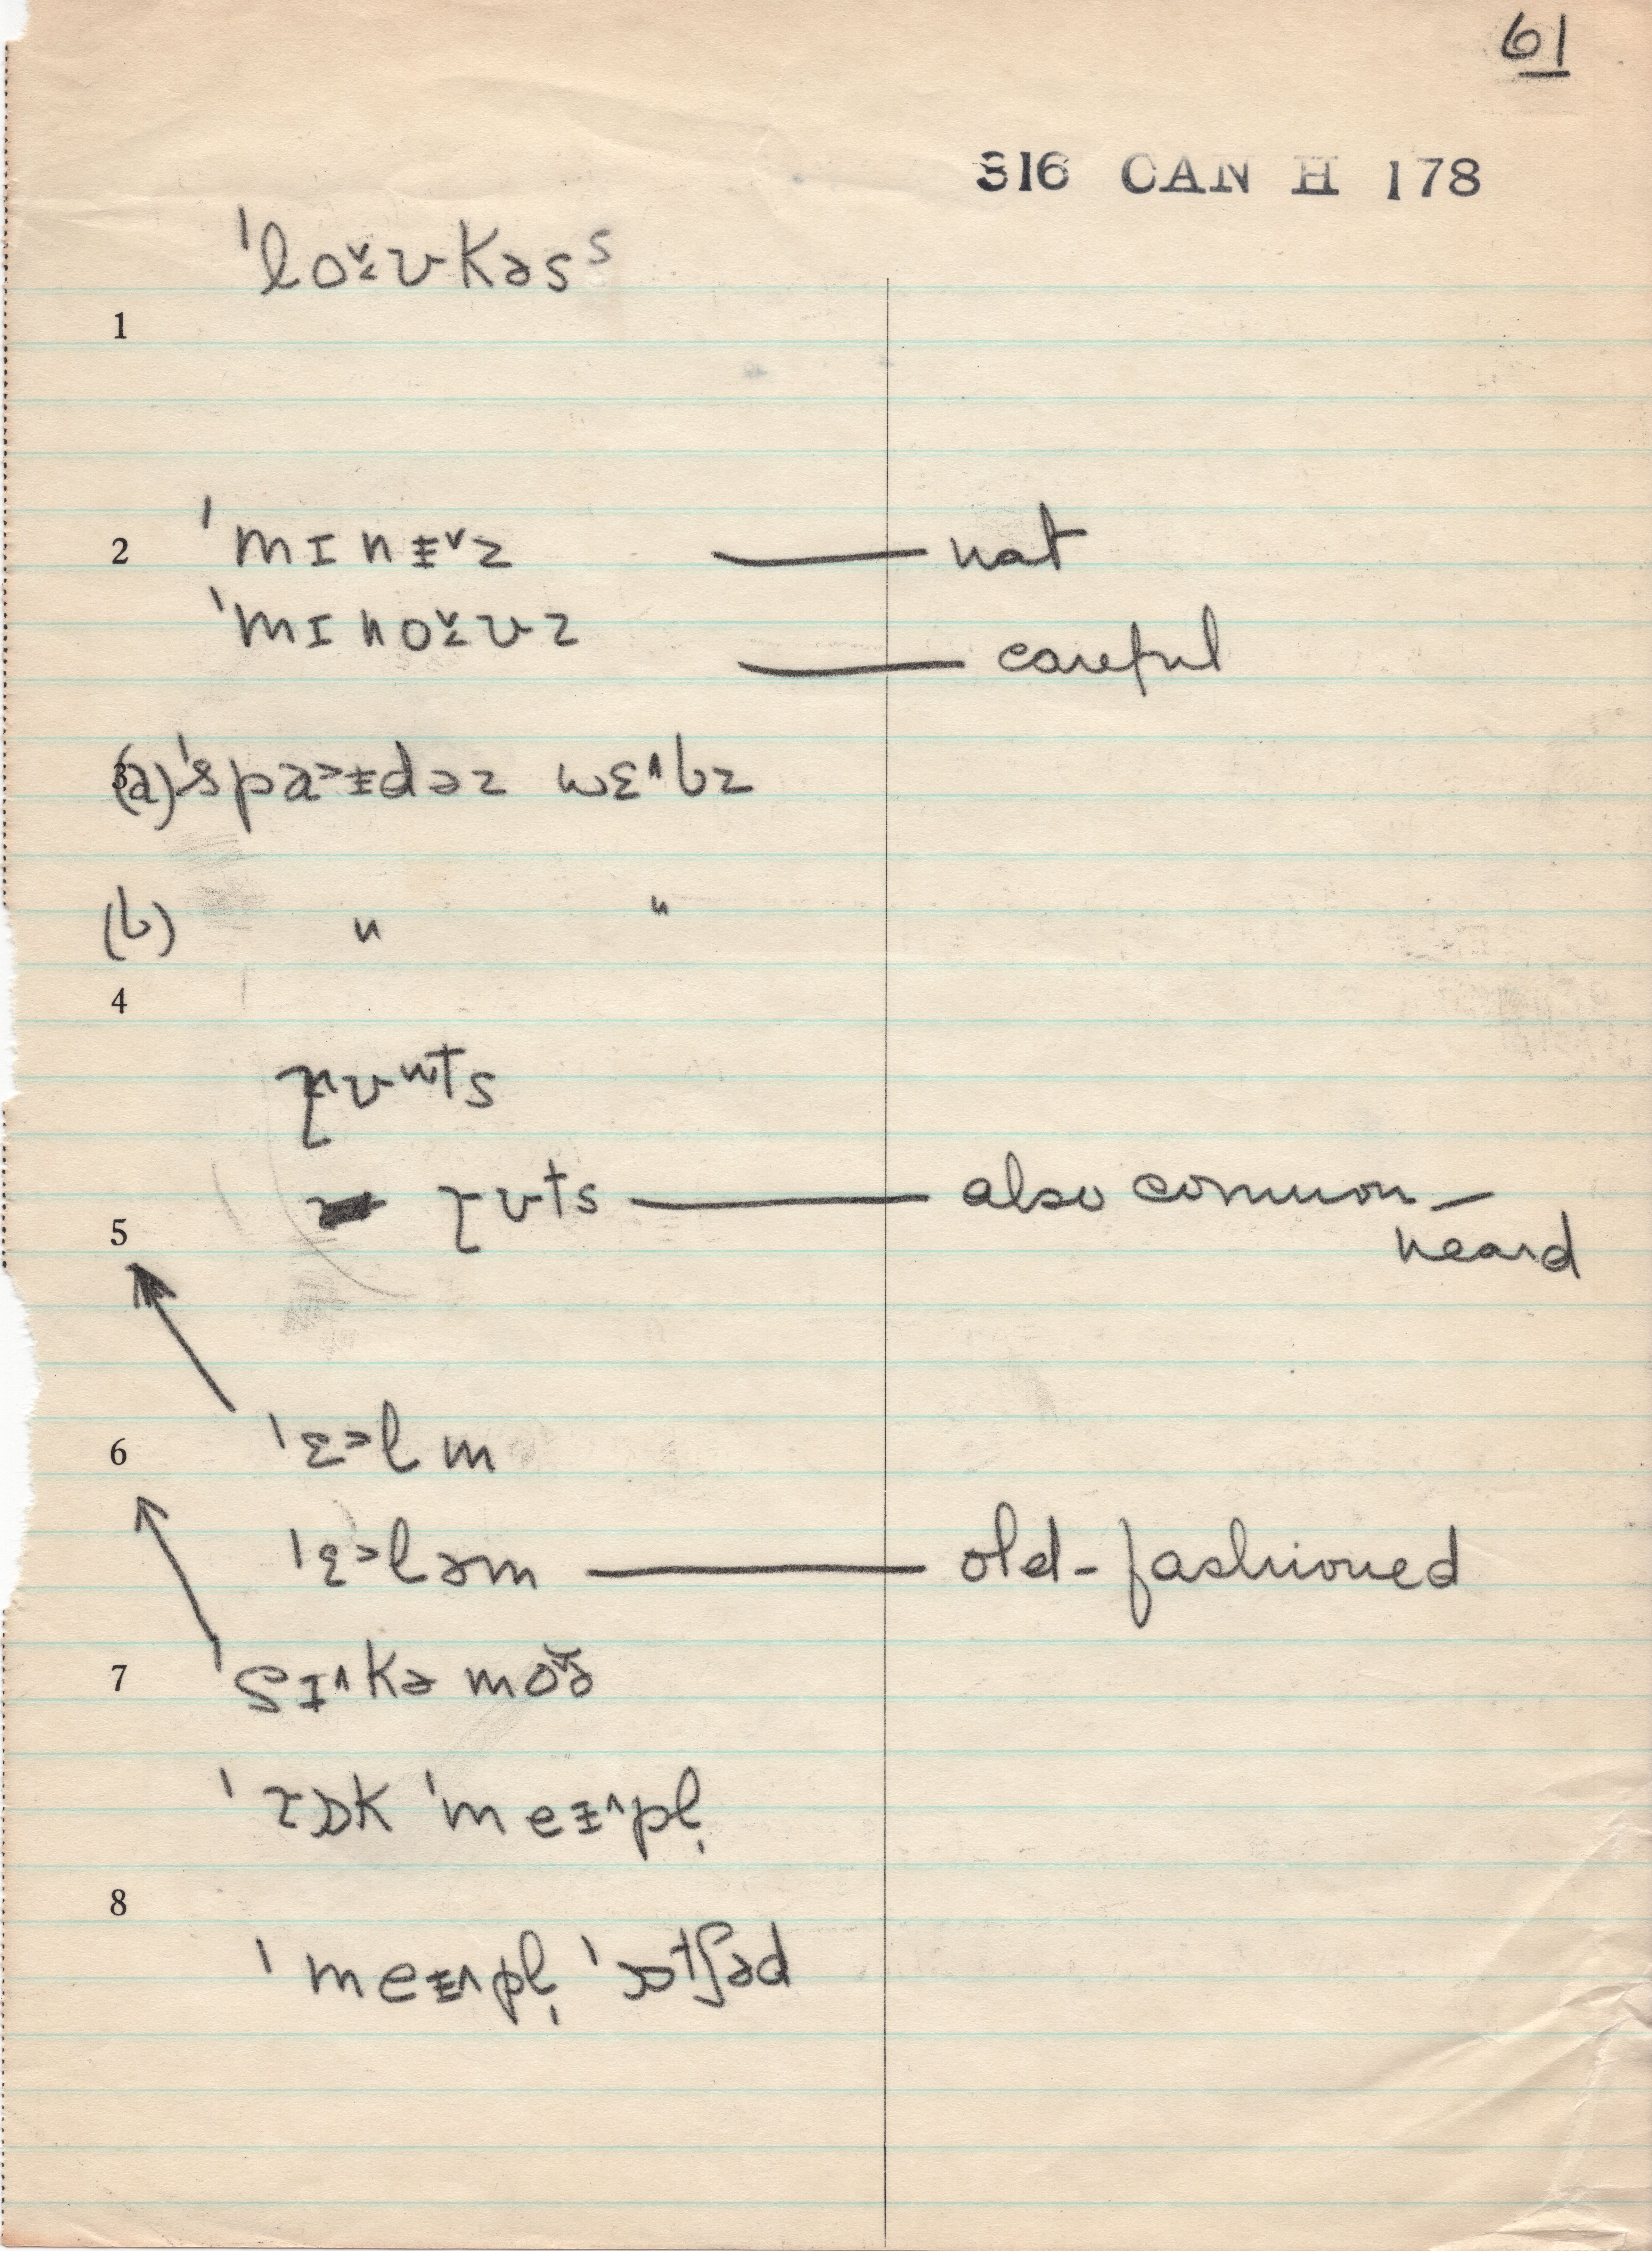 61
316 CAN H 178
ˈloʊ̬ʊkəsˢ
1
2 ˈmɪnɨ̬z — nat
ˈmɪnoʊ̬ʊz — careful
3
(a) ˈspa˃ɨdəz wɛ˄bz
(b) " "
4
ɹʊʷts
ɹʊts — also common — heard
5
6 ˈɛ˃lm
ˈɛ˃ləm — old-fashioned
7 ˈsɪ˄kəmoɚ
ˈɹɒk ˈmeɨ˄pl̩
8
ˈmeɨ˄pl̩ ˈɔɹtʃəd